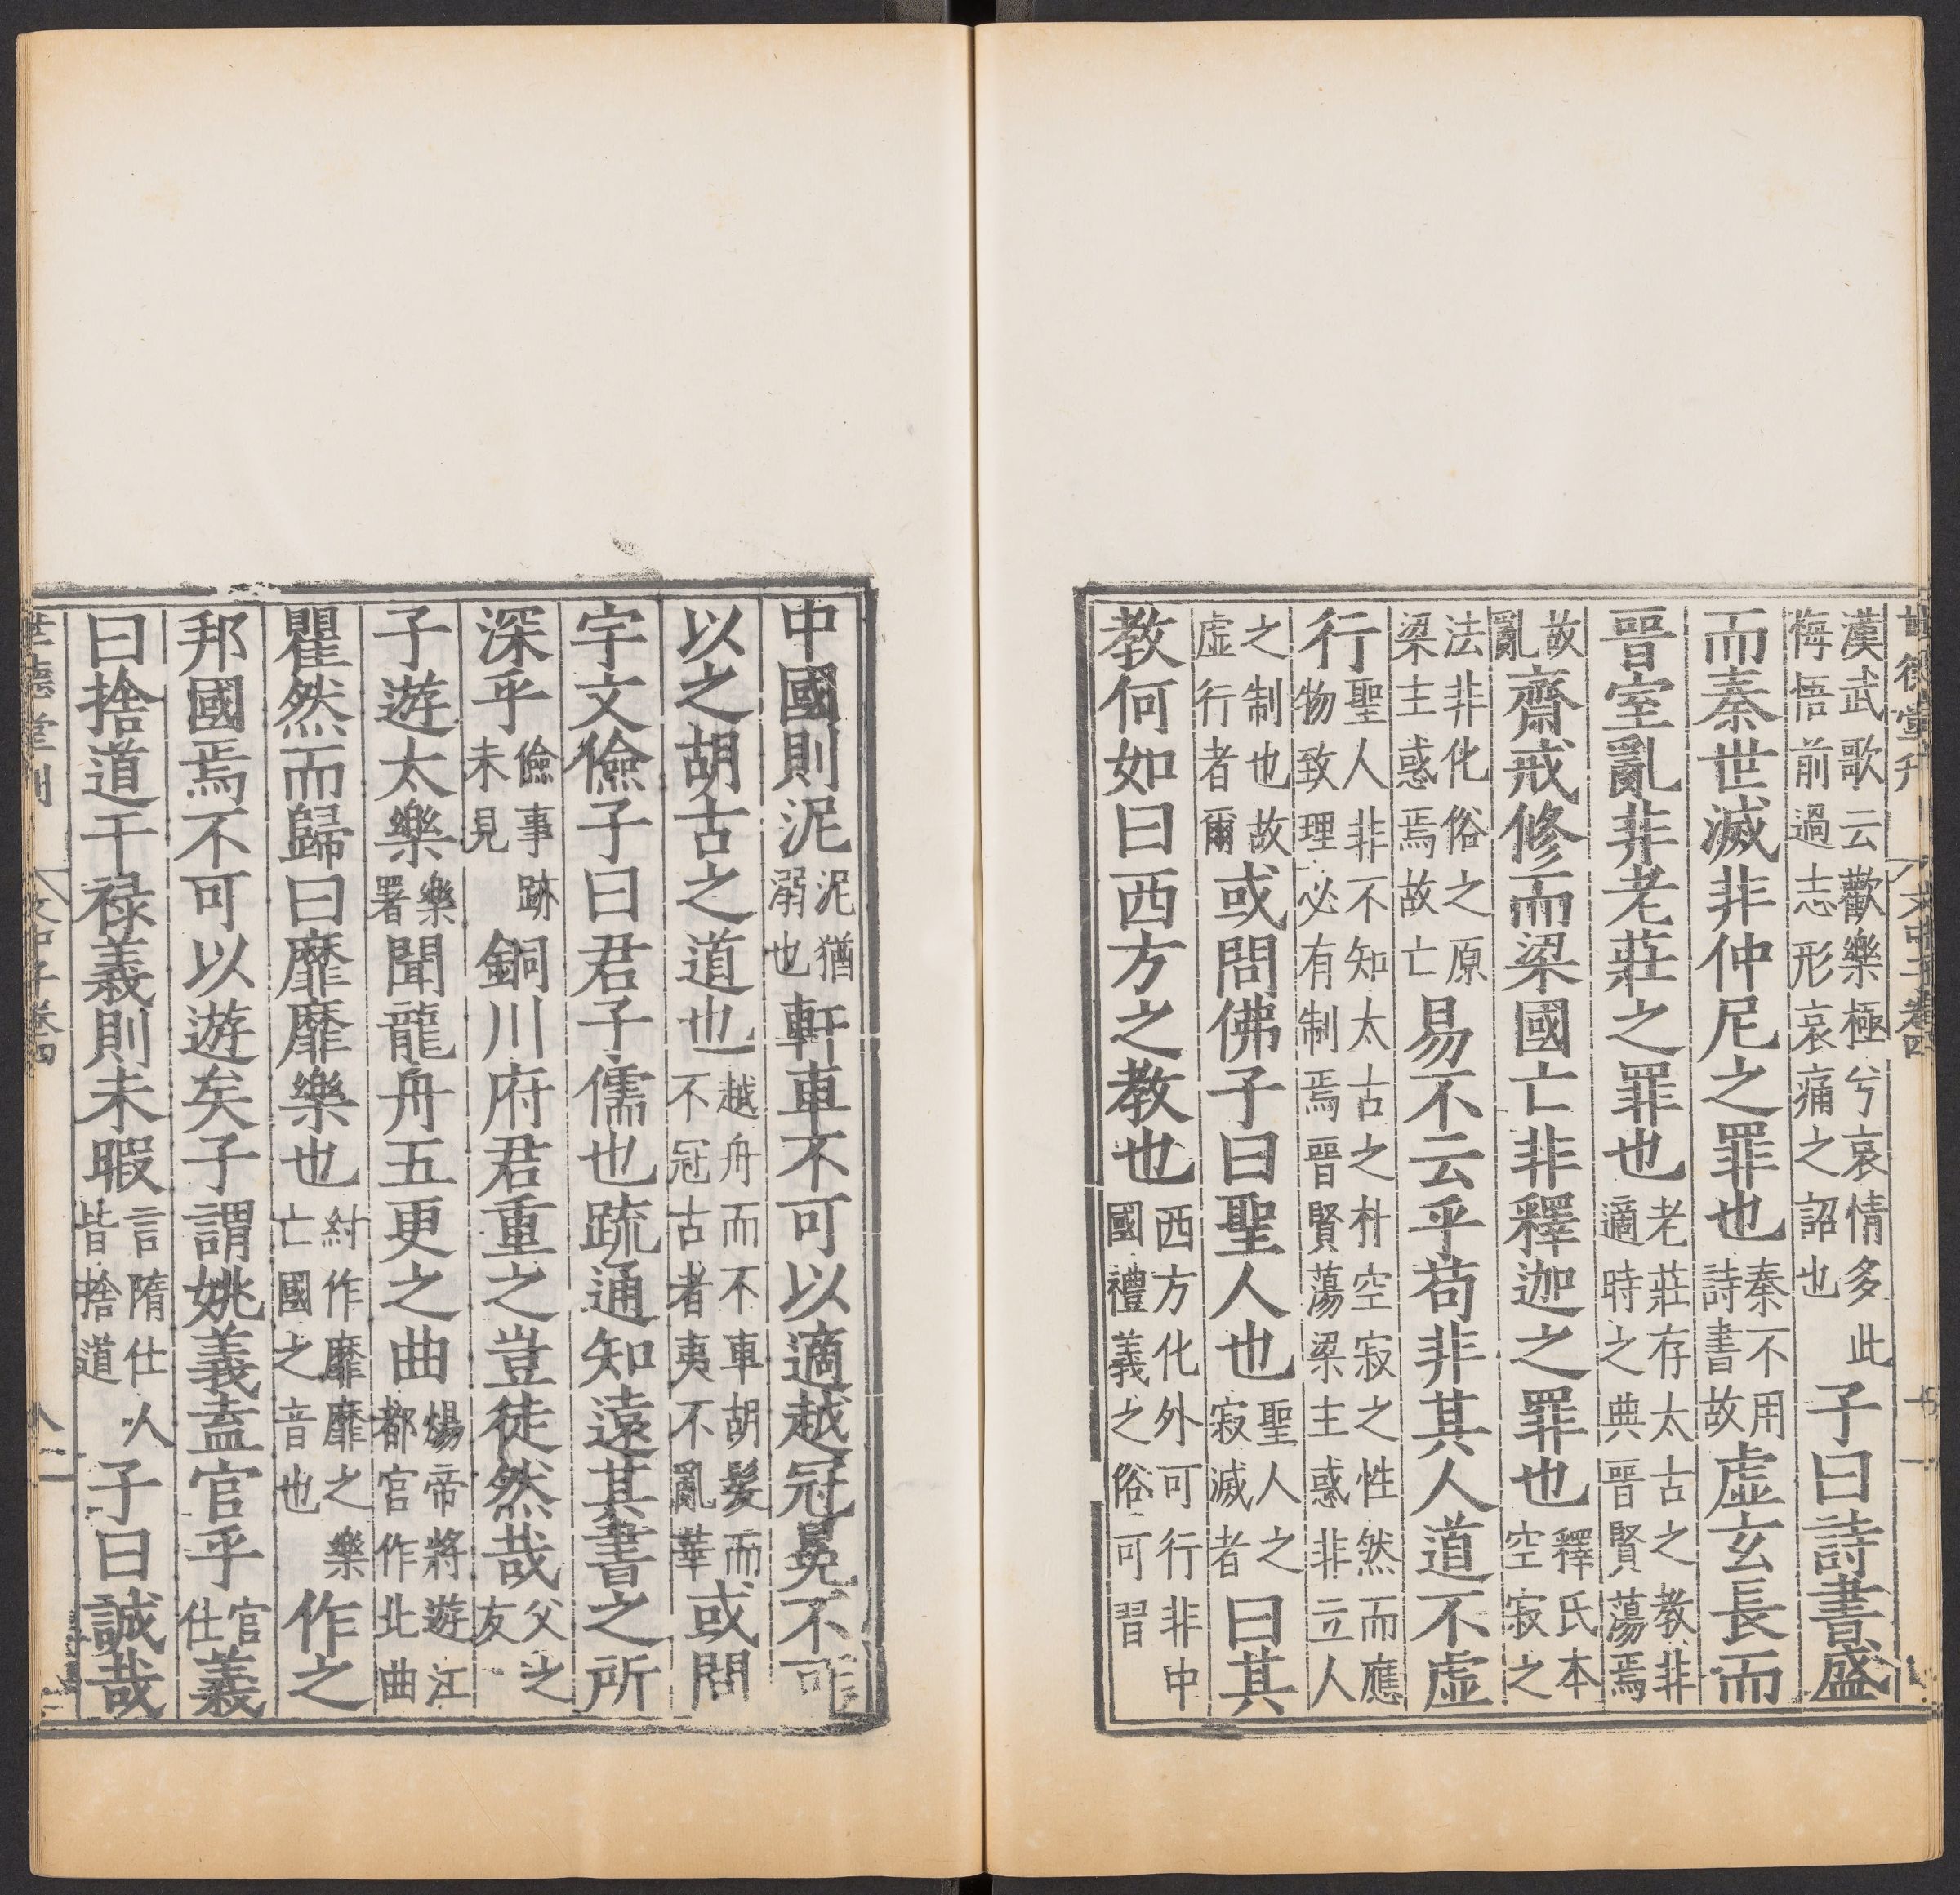 漢武歌云歡樂極兮哀情多此悔悟前過志形哀痛之詔也子曰詩書盛
而秦世滅非仲尼之罪也秦不用詩書故虛玄長而
晉室亂非老莊之罪也老莊存太古之教非適時之典晉賢蕩焉
故亂齋戒修而梁國亡非釋迦之罪也釋氏本空寂之
法非化俗之原梁主惑焉故亡易不云乎苟非其人道不虛
行聖人非不知太古之朴空寂之性然而應物致理必有制焉晉賢蕩梁主惑非立人
之制也故虛行者爾或問佛子曰聖人也聖人之寂滅者曰其
教何如曰西方之教也西方化外可行非中國禮義之俗可習
中國則泥泥猶溺也軒車不可以適越冠冕不可
以之胡古之道也越舟而不車胡髮而不冠古者夷不亂華或問
宇文儉子曰君子儒也疏通知遠其書之所
深乎儉事跡未見銅川府君重之豈徒然哉父之友
子遊太樂樂署聞龍舟五更之曲煬帝將遊江都官作北曲
瞿然而歸曰靡靡樂也紂作靡靡之樂亡國之音也作之
邦國焉不可以遊矣子謂姚義盍官乎官仕義
曰捨道干祿義則未暇言隋仕人皆捨道子曰誠哉